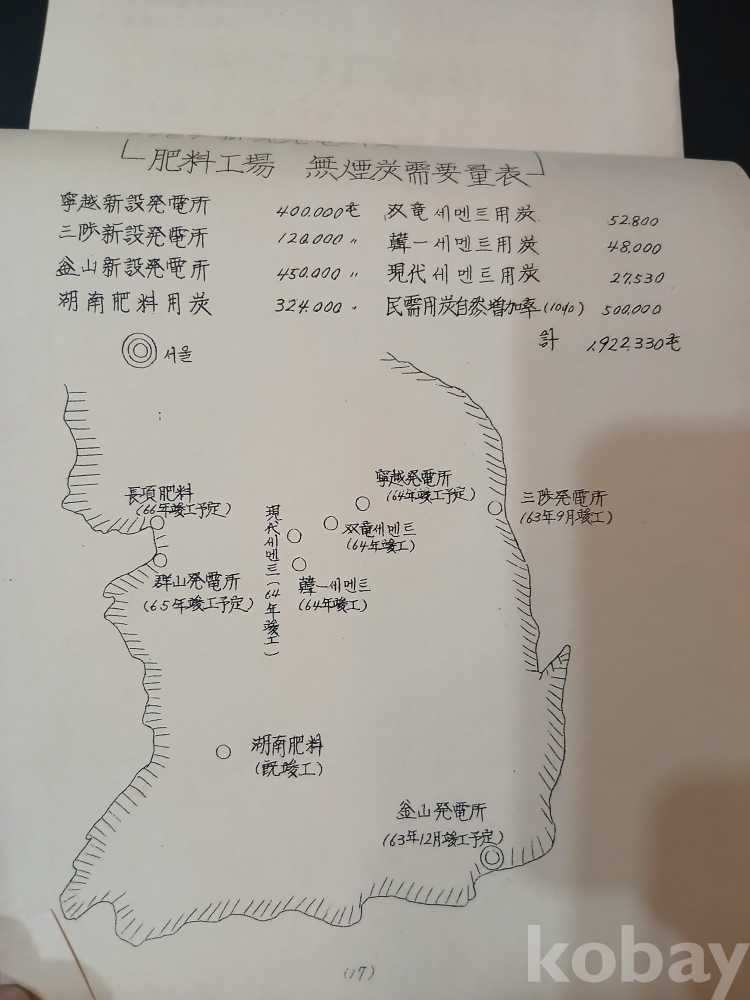 肥料工場 無煙炭需要量表
寧越新設発電所 400.000屯
三陟新設発電所 120.000 〃
釜山新設発電所 450.000 〃
湖南肥料用炭 324.000 〃
双竜세멘트用炭 52.800
韓一세멘트用炭 48.000
現代세멘트用炭 27.530
民需用炭自然増加率(10%) 500.000
計 1,922.330屯
서울
寧越発電所
(64年竣工予定)
三陟発電所
(63年9月竣工)
長項肥料
(66年竣工予定)
双竜세멘트
(64年竣工)
現代세멘트(64年竣工)
群山発電所
(65年竣工予定)
韓一세멘트
(64年竣工)
湖南肥料
(既竣工)
釜山発電所
(63年12月竣工予定)
(17)
kobay